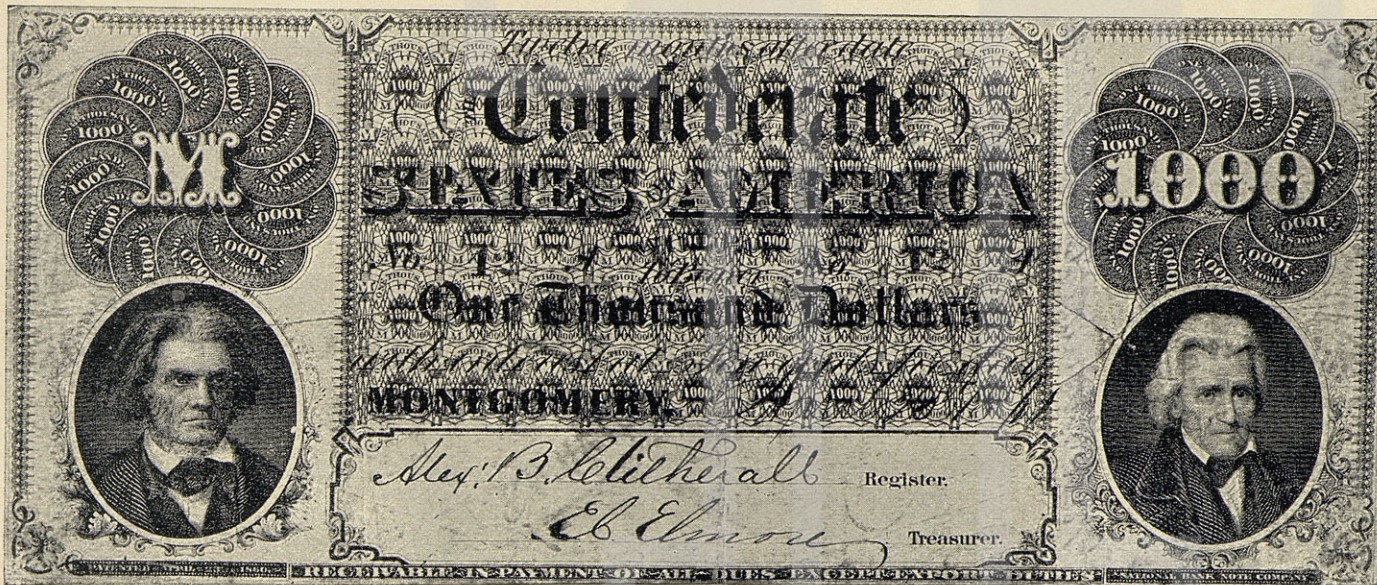 Twelve months after date
the Confederate
STATES OF AMERICA
No.
One Thousand Dollars
with interest at ten cents per day
MONTGOMERY,
M
1000
Alex. B. Clitherall Register.
E C Elmore Treasurer.
RECEIVABLE IN PAYMENT OF ALL DUES EXCEPT EXPORT DUTIES
NATIONAL BANK NOTE COMPY